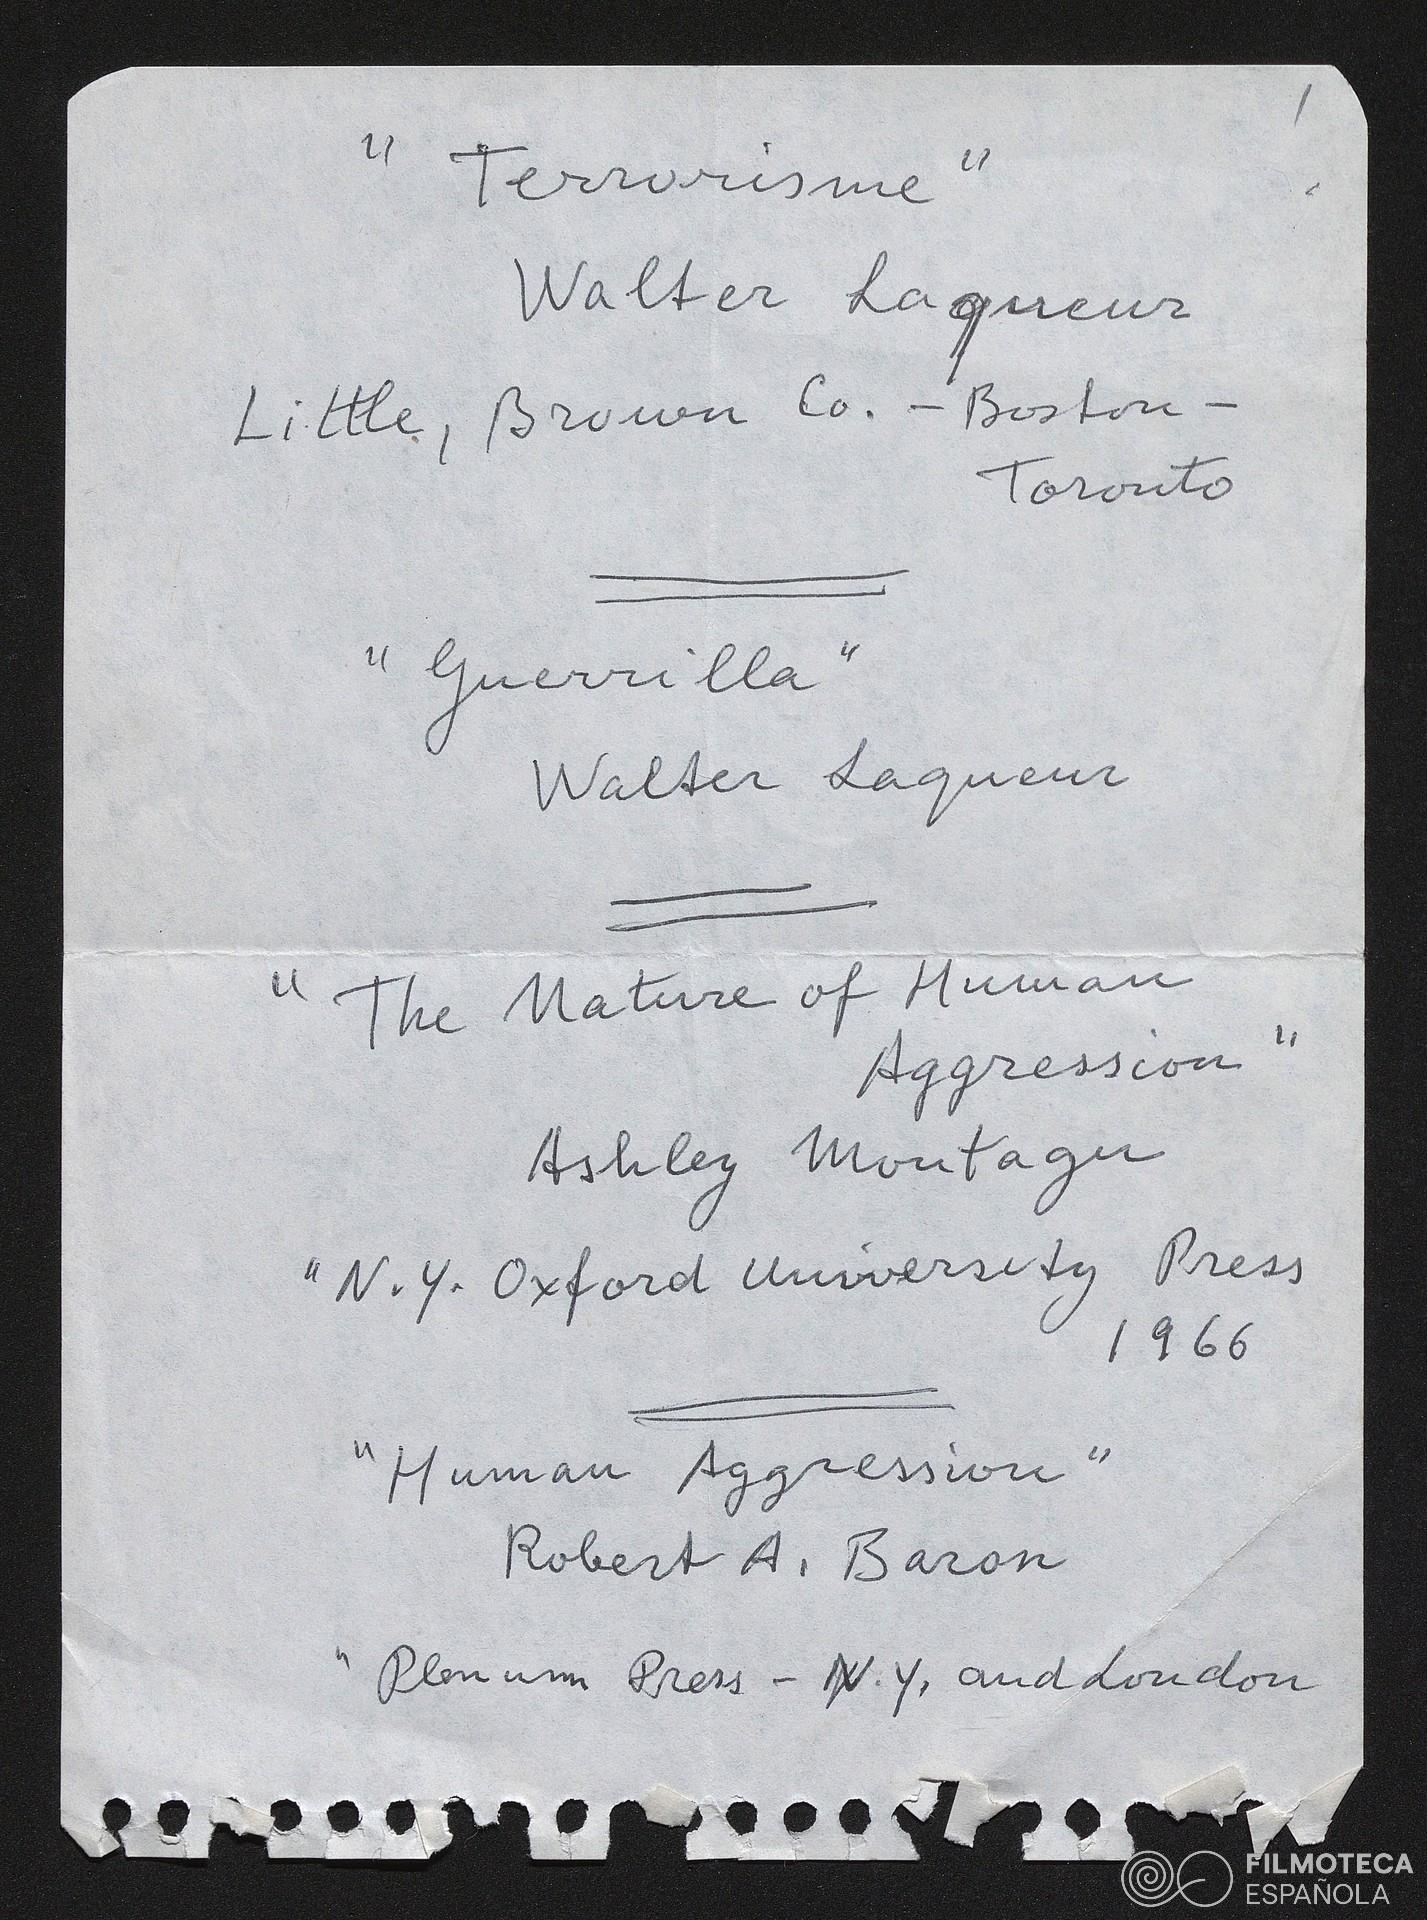 1
" Terrorisme "
Walter Laqueur
Little, Brown Co. - Boston -
Toronto
" Guerrilla "
Walter Laqueur
" The Nature of Human
Aggression "
Ashley Montagu
" N.Y. Oxford University Press
1966
" Human Aggression "
Robert A. Baron
" Plenum Press - N.Y. and London
FILMOTECA
ESPAÑOLA